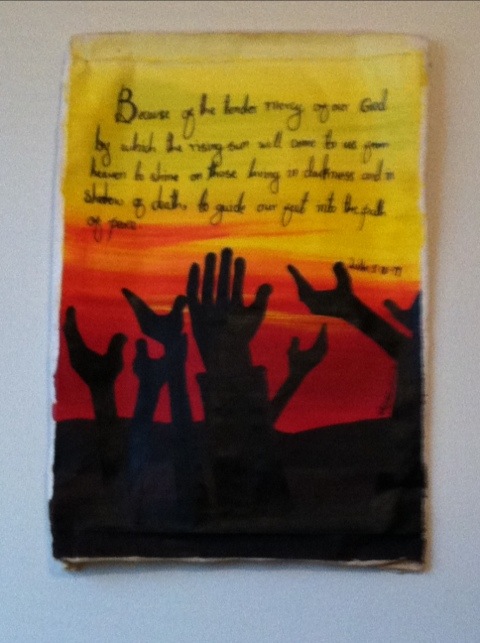 Because of the tender mercy of our God
by which the rising sun will come to us from
heaven to shine on those living in darkness and in
shadow of death, to guide our feet into the path
of peace.